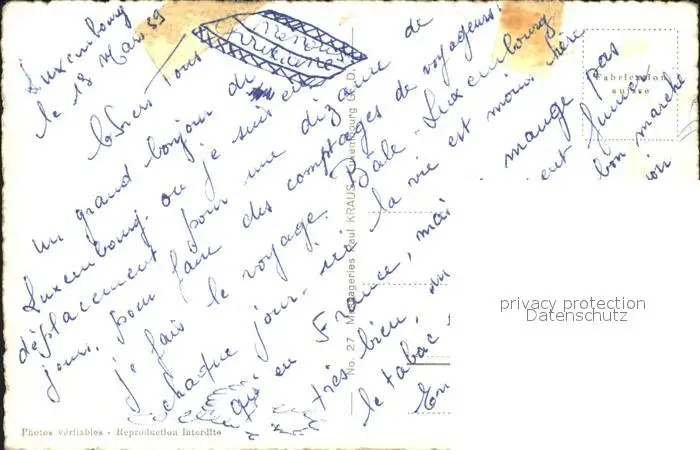 Luxembourg
le 13 Mars 59
Chers Tous
un grand bonjour de
Luxembourg, ou je suis en
déplacement pour une dizaine de
jours, pour faire des comptages de voyageurs.
je fais le voyage Bâle - Luxembourg
chaque jour. la vie est moins chère
qu'en France, mange pas
très bien, fumer
le tabac bon marché
Fabrication
suisse
No. 27 Messageries Paul KRAUS, Luxembourg
Photos véritables - Reproduction Interdite
privacy protection
Datenschutz